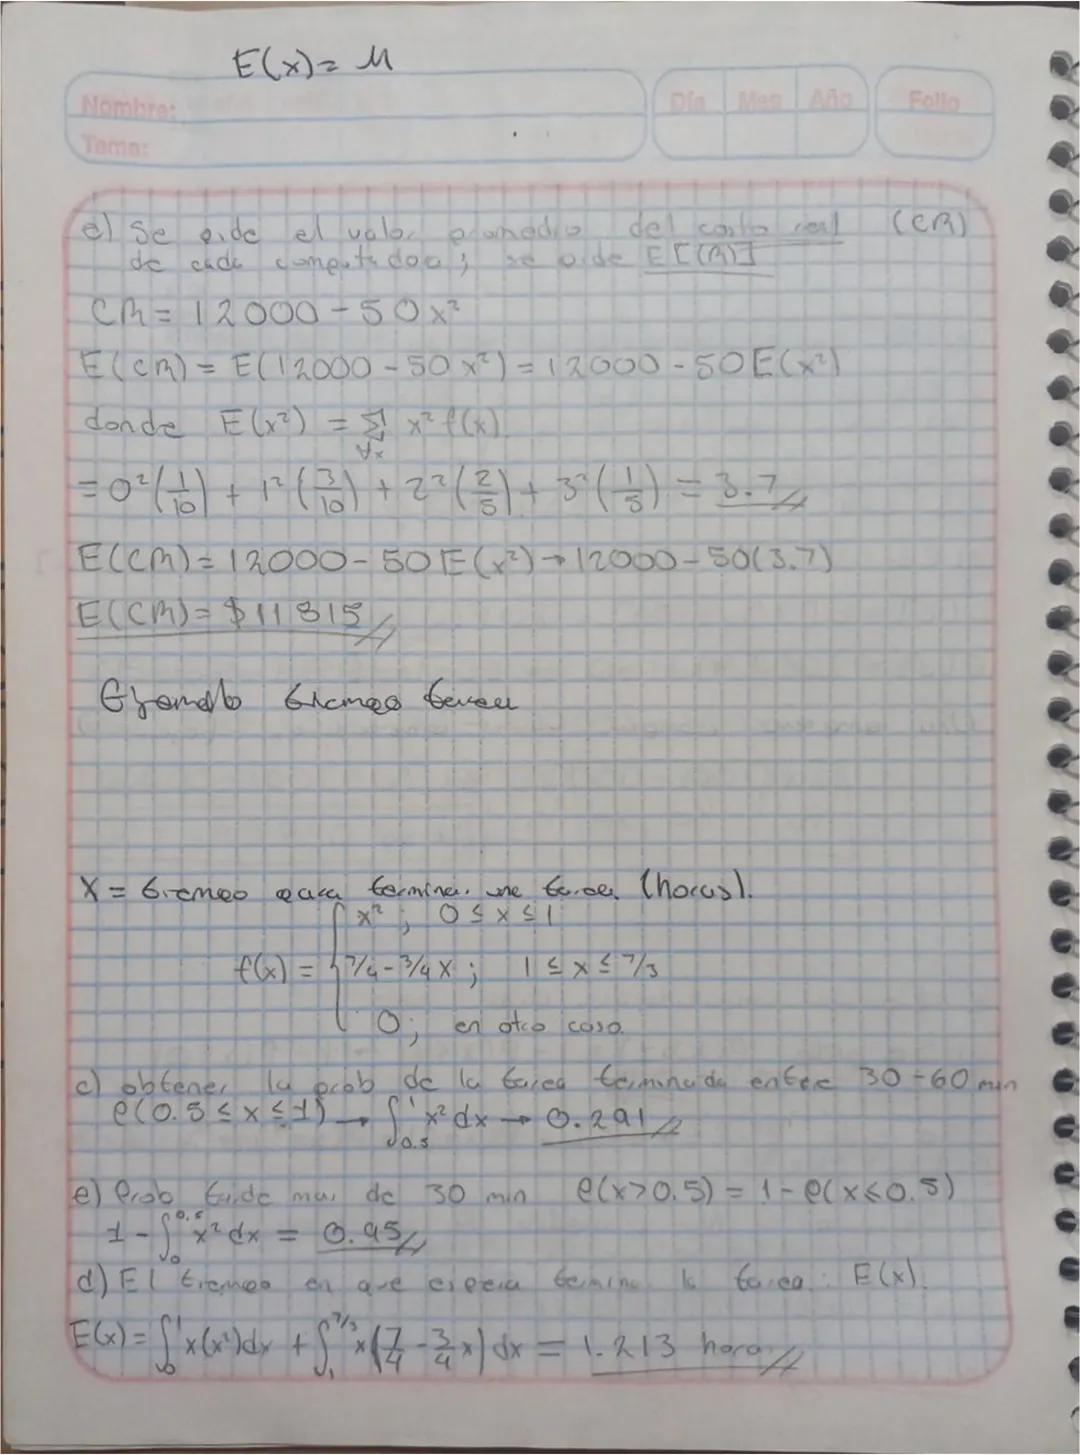 E(x) = M
Nombre:
Tema:
Día Mes Año Folio
e) Se pide el valor promedio del costo real (CR)
de cada computadora; se pide E[CR]
CR = 12000 - 50x²
E(CR) = E(12000 - 50x²) = 12000 - 50E(x²)
donde E(x²) = Σ x² f(x)
∀x
= 0²(1/10) + 1²(3/10) + 2²(2/5) + 3²(1/5) = 3.7
E(CR) = 12000 - 50E(x²) → 12000 - 50(3.7)
E(CR) = $11815
Ejemplo tiempo tarea
X = tiempo para terminar una tarea (horas).
x²; 0 ≤ x ≤ 1
f(x) = { 7/4 - 3/4 x; 1 ≤ x ≤ 7/3
0; en otro caso.
c) obtener la prob de la tarea terminada entre 30-60 min
P(0.5 ≤ x ≤ 1) → ∫₀.₅¹ x² dx → 0.291
e) Prob tarde mas de 30 min P(x>0.5) = 1 - P(x≤0.5)
1 - ∫₀^0.5 x² dx = 0.95
d) El tiempo en que espera termine la tarea: E(x).
E(x) = ∫₀¹ x(x²)dx + ∫₁^7/3 x(7/4 - 3/4 x) dx = 1.213 horas